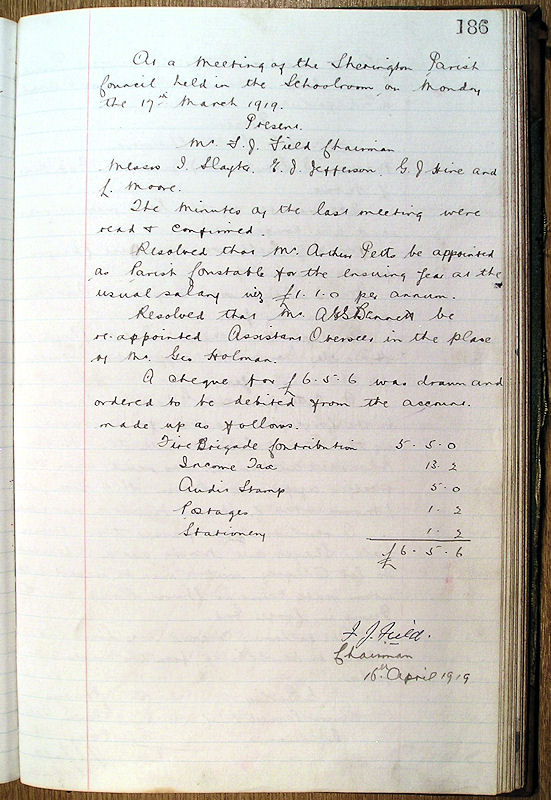 186
At a meeting of the Sherington Parish
Council held in the Schoolroom on Monday
the 17th March 1919.
Present.
Mr. F. J. Field Chairman
Messrs I. Slayter, E. J. Jefferson, G. J Hine and
L. Moore.
The minutes of the last meeting were
read & confirmed.
Resolved that Mr. Arthur Pett be appointed
as Parish Constable for the ensuing year at the
usual salary viz £1.1.0 per annum.
Resolved that Mr. Bennett be
re-appointed Assistant Overseer in the place
of Mr. Geo Holman.
A cheque for £6.5.6 was drawn and
ordered to be debited from the account.
made up as follows.
Fire Brigade Contribution 5.5.0
Income Tax 13.2
Audit Stamp 5.0
Postages 1.2
Stationery 1.2
£6.5.6
F. J. Field.
Chairman
16th April 1919